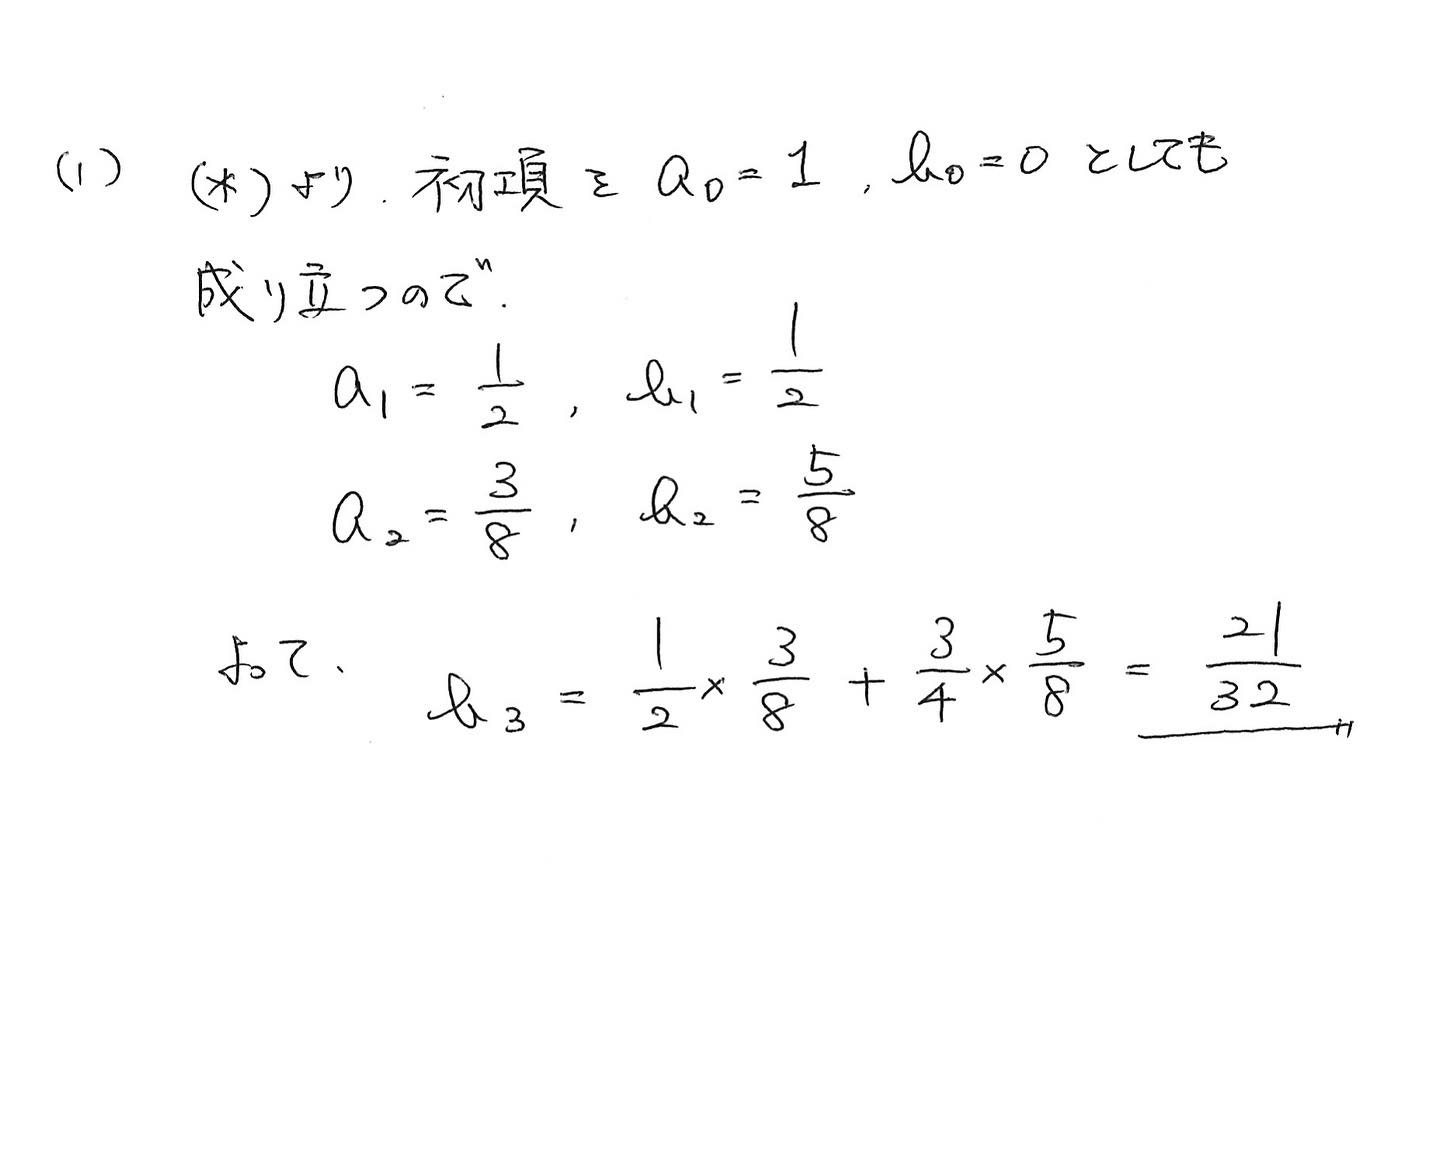 (1) (*)より. 初項を a₀ = 1 , b₀ = 0 としても
成り立つので.
a₁ = 1/2 , b₁ = 1/2
a₂ = 3/8 , b₂ = 5/8
よって. b₃ = 1/2 × 3/8 + 3/4 × 5/8 = 21/32